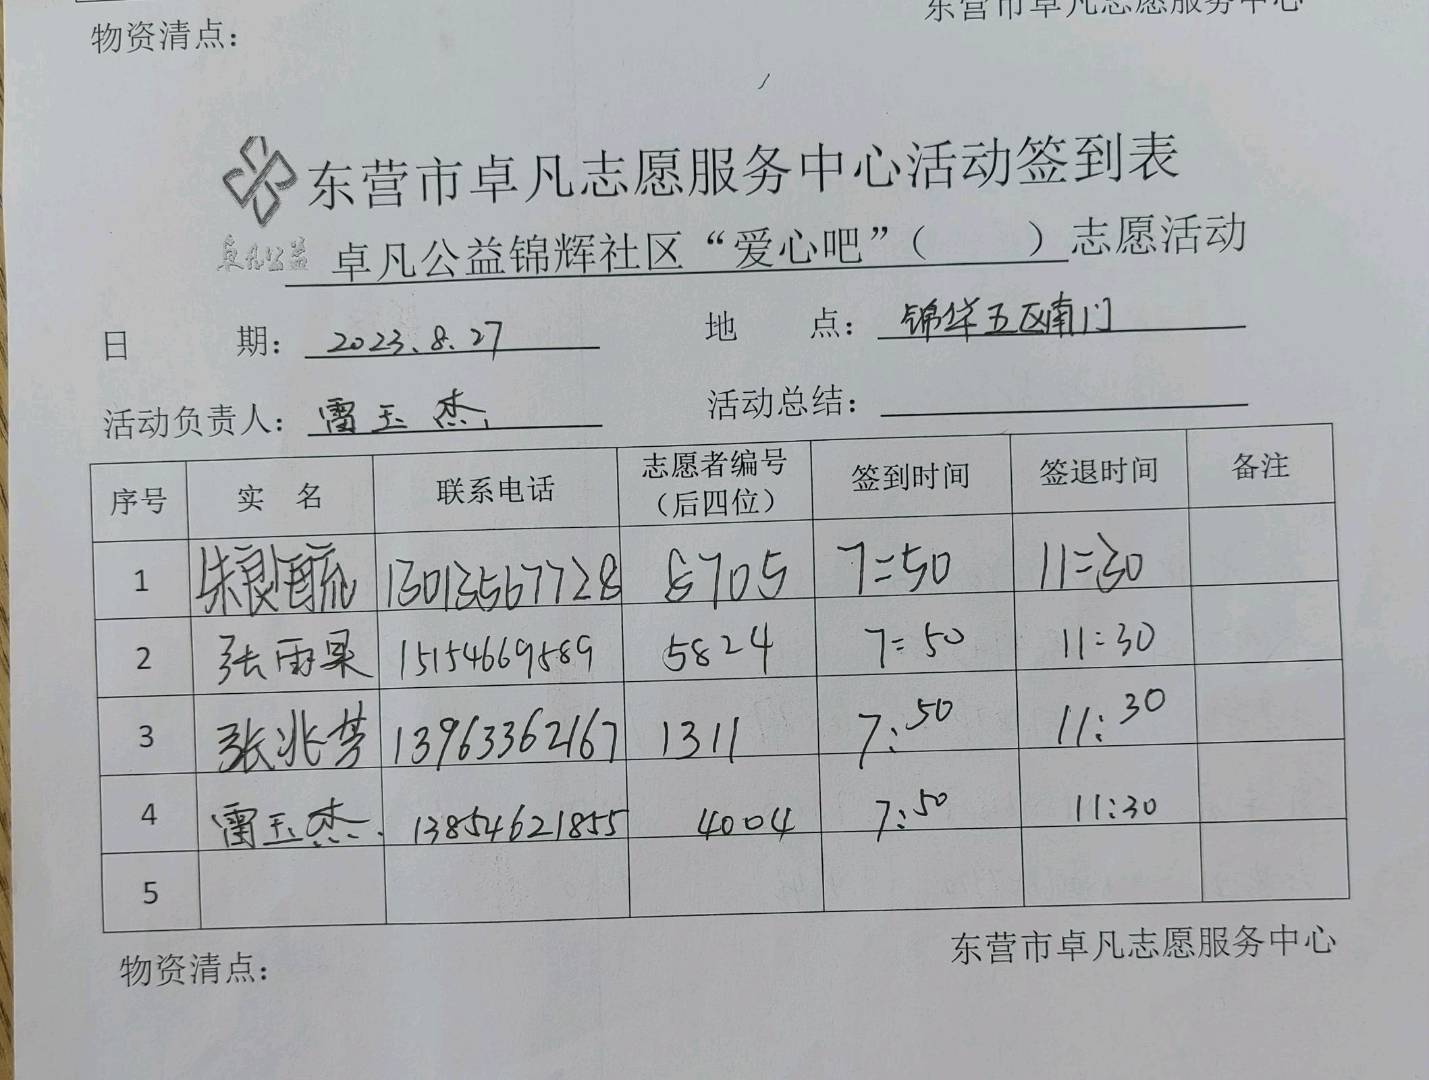 东营市卓凡志愿服务中心
物资清点：
东营市卓凡志愿服务中心活动签到表
卓凡公益
卓凡公益锦辉社区“爱心吧”（ ）志愿活动
日 期：2023.8.27 地 点：锦华五区南门
活动负责人：雷玉杰 活动总结：
序号 实 名 联系电话 志愿者编号（后四位） 签到时间 签退时间 备注
1 朱良 13013567728 8705 7=50 11=30
2 张雨果 15154669589 5824 7=50 11:30
3 张兆芳 13963362167 1311 7:50 11:30
4 雷玉杰. 13854621855 4004 7:50 11:30
5
物资清点：
东营市卓凡志愿服务中心